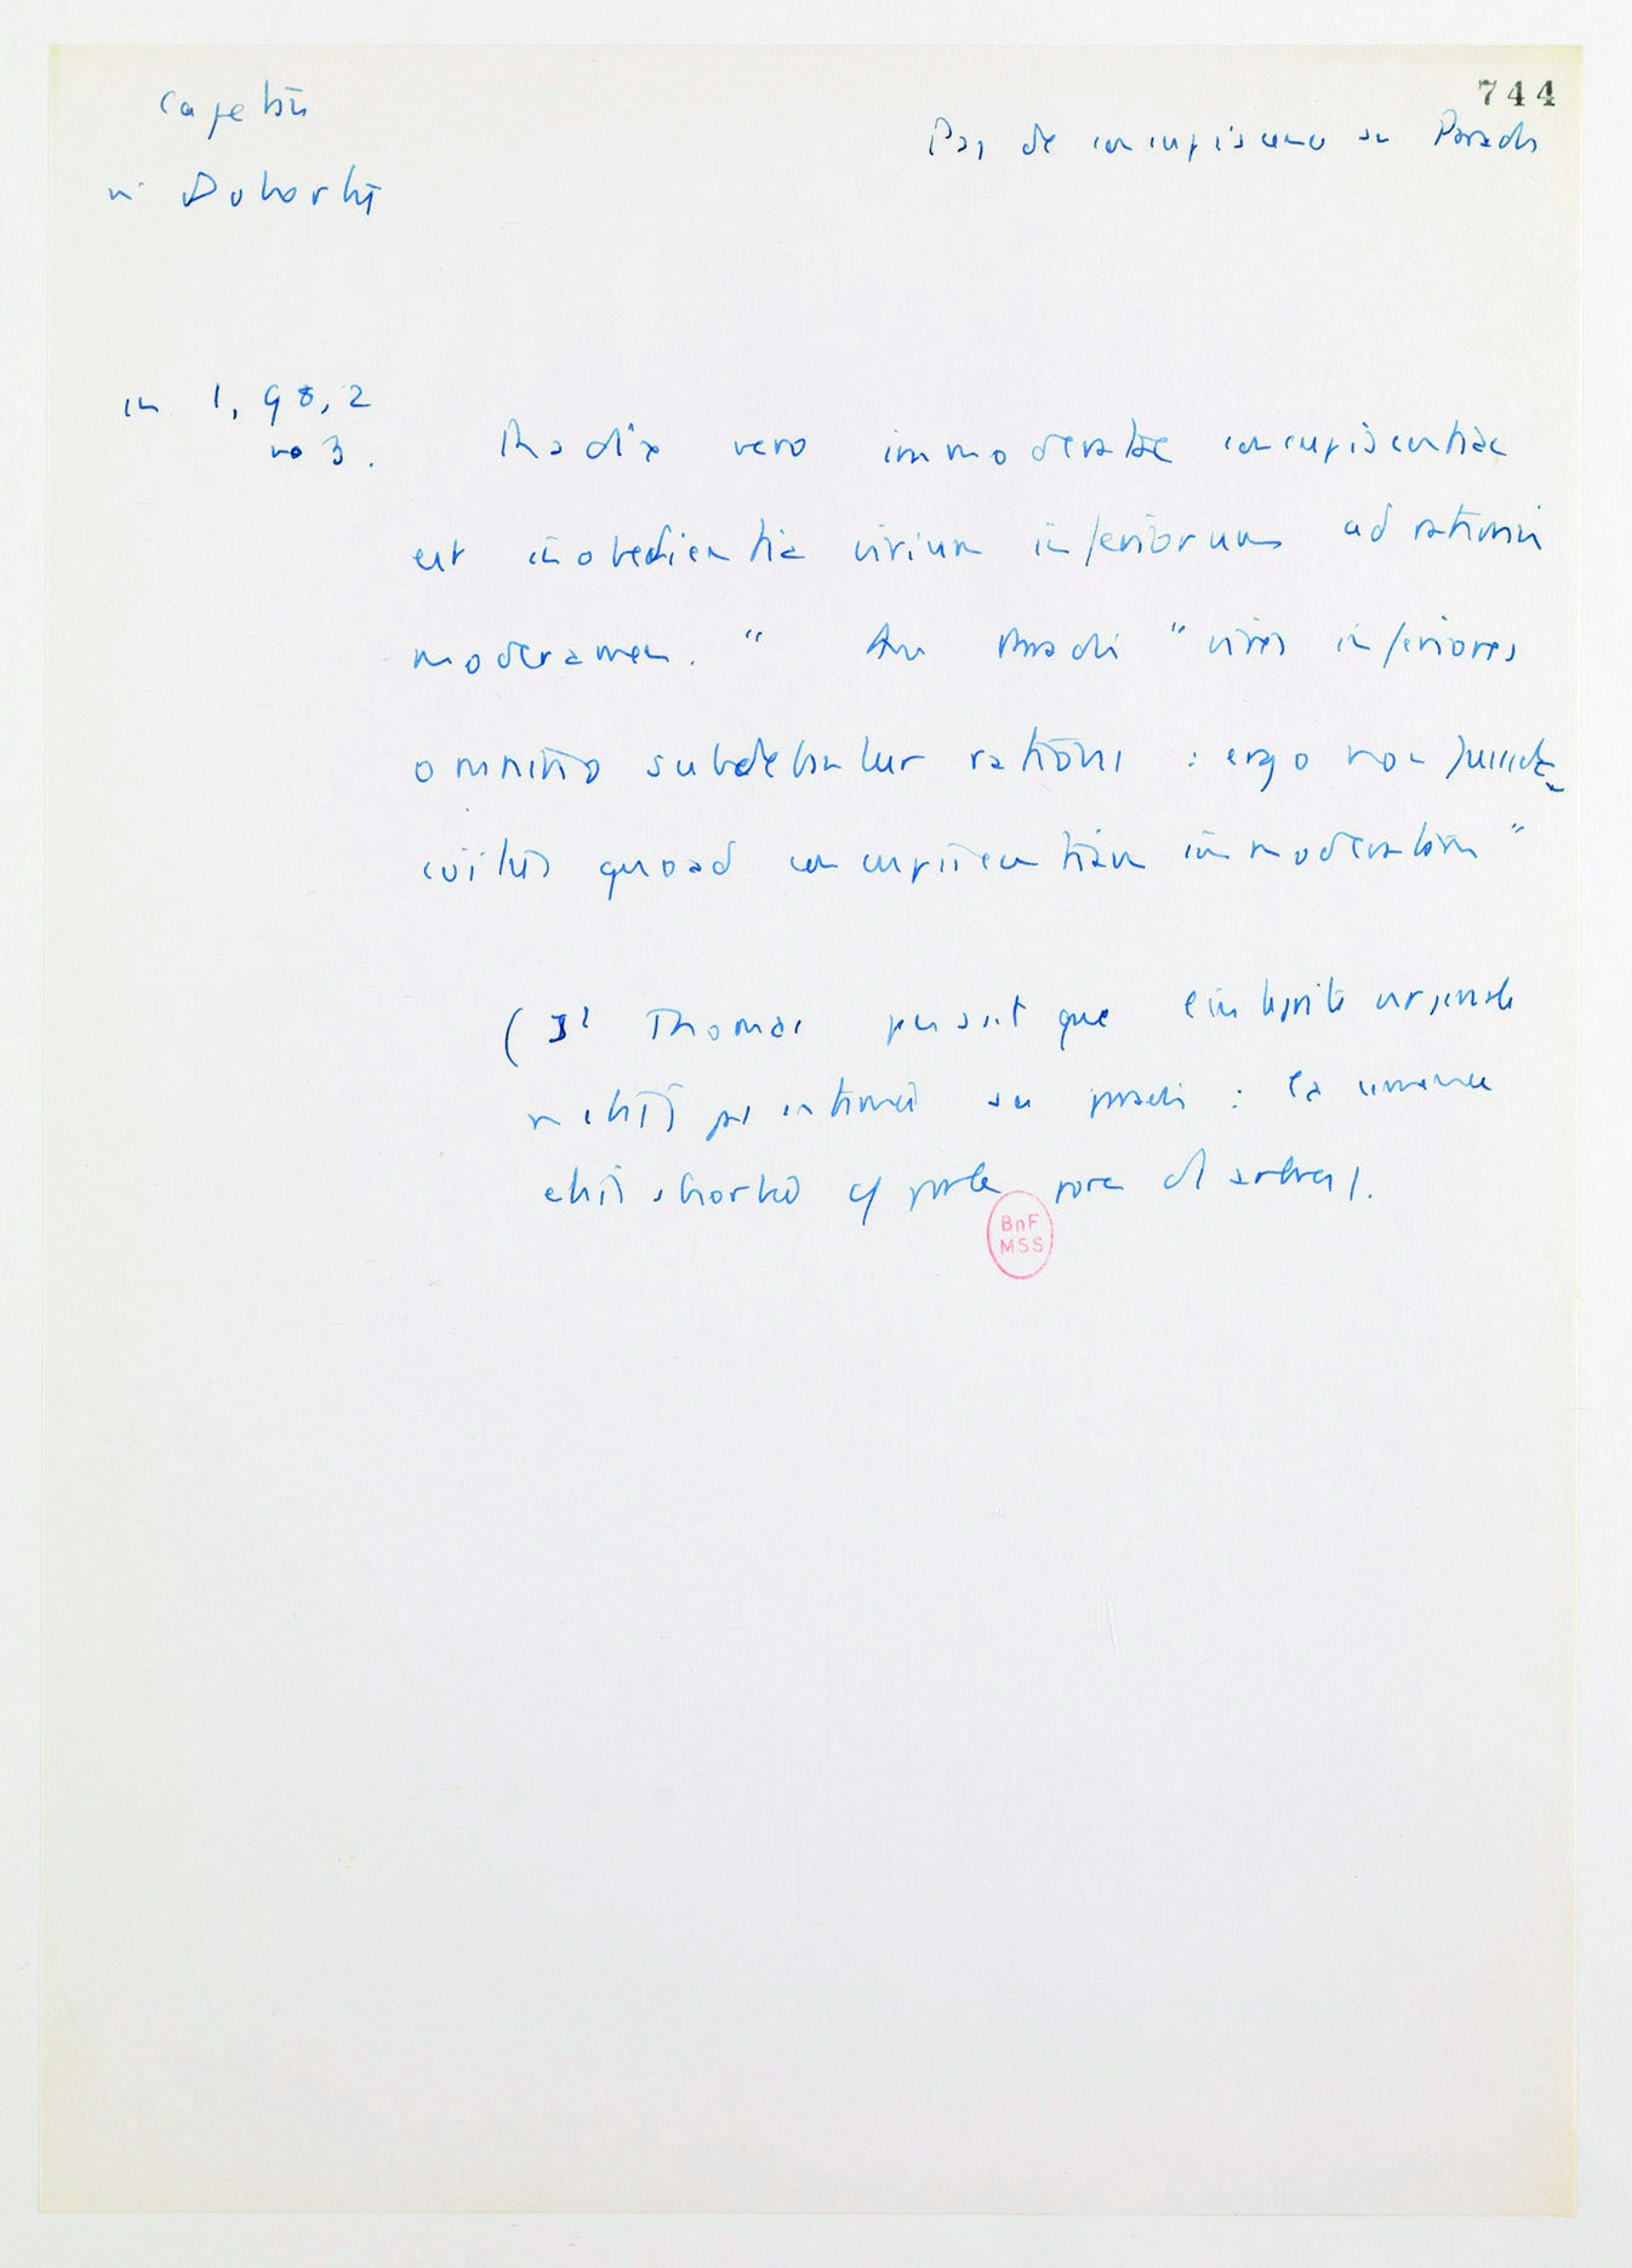 744
Cajetan
in Doherty
Pas de concupiscence au Paradis
in 1, 98, 2
no 3.
Radix vero immoderatae concupiscentiae
est inobedientia virium inferiorum ad rationis
moderamen." Au Paradis "vires inferiores
omnino subdebantur rationi : ergo non
coitus quoad concupiscentiam immoderatam"
(St Thomas pensait que l'intégrité virginale
n'était pas entamée au paradis : la semence
était absorbée par
BnF
MSS